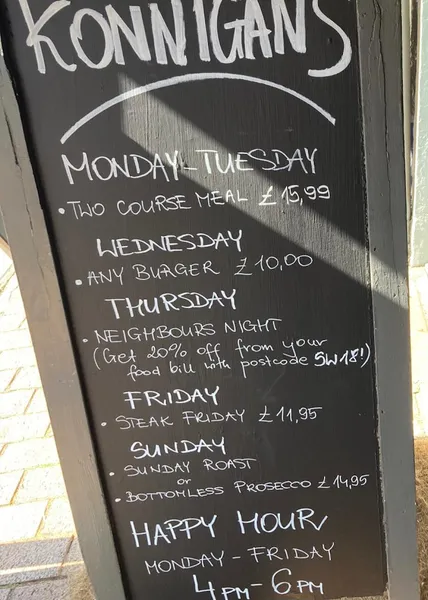 KONNIGANS
MONDAY-TUESDAY
• TWO COURSE MEAL £15,99
WEDNESDAY
• ANY BURGER £10,00
THURSDAY
• NEIGHBOURS NIGHT
(Get 20% off from your
food bill with postcode SW18!)
FRIDAY
• STEAK FRIDAY £11,95
SUNDAY
• SUNDAY ROAST
or
• BOTTOMLESS PROSECCO £14,95
HAPPY HOUR
MONDAY - FRIDAY
4PM - 6PM